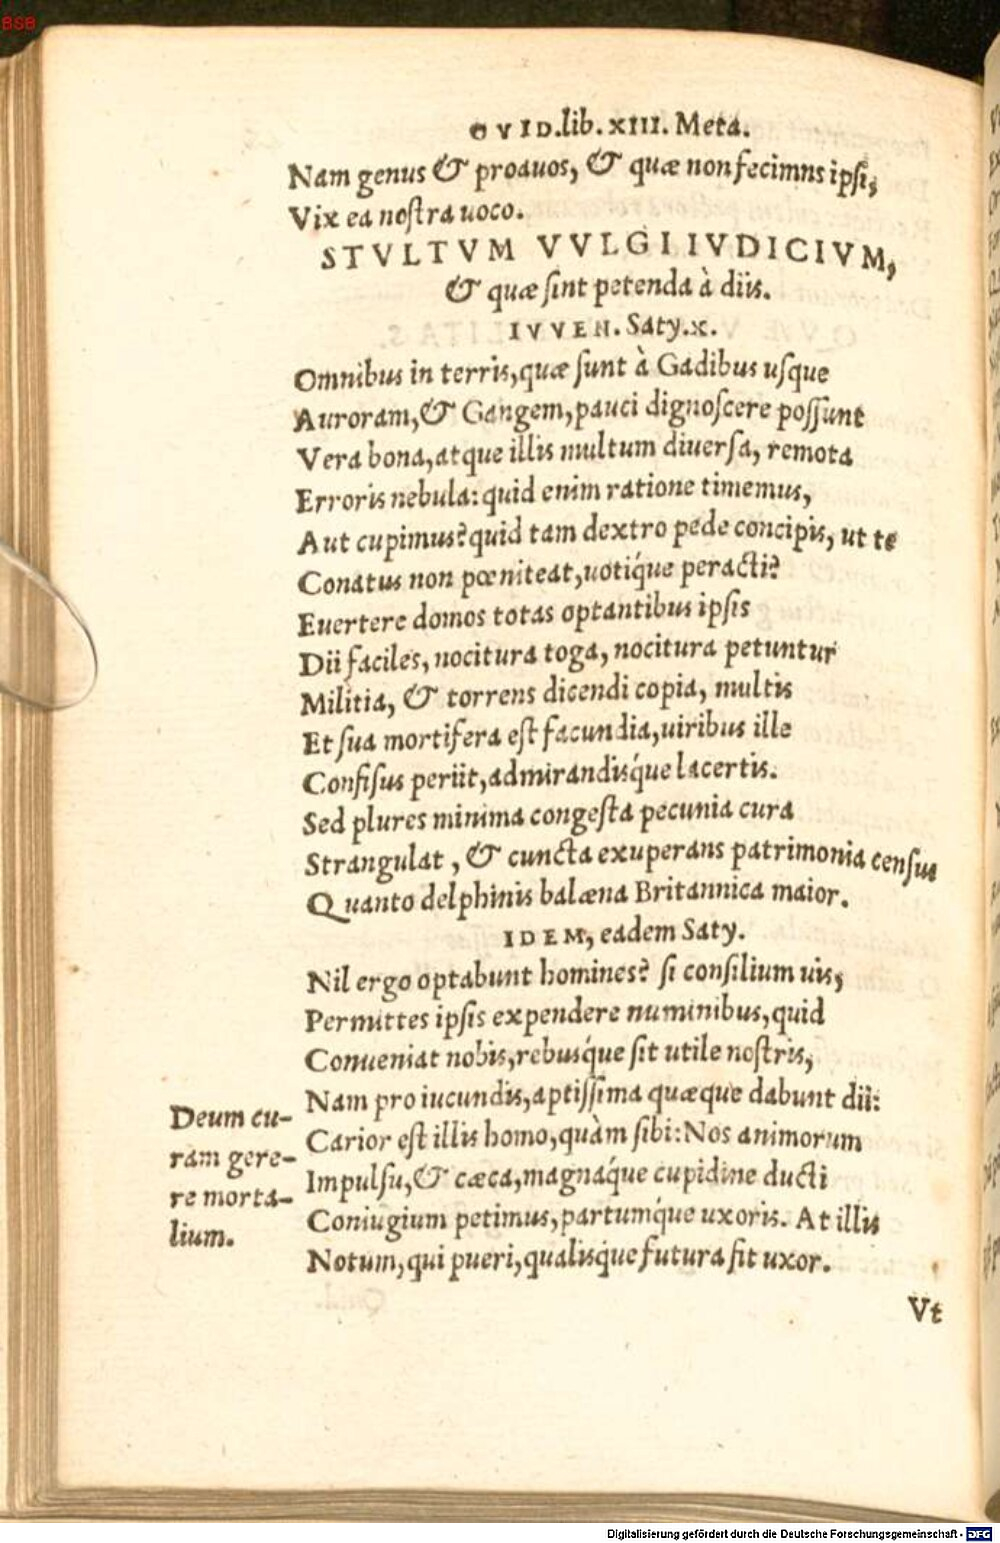 BSB
OVID.lib.XIII. Meta.
Nam genus & proauos, & quæ non fecimns ipsi,
Vix ea nostra uoco.
STVLTVM VVLGI IVDICIVM,
& quæ sint petenda à diis.
IVVEN. Saty.x.
Omnibus in terris,quæ sunt à Gadibus usque
Auroram,& Gangem,pauci dignoscere possunt
Vera bona,atque illis multum diuersa, remota
Erroris nebula:quid enim ratione timemus,
Aut cupimus?quid tam dextro pede concipis, ut te
Conatus non pœniteat,uotiq́ue peracti?
Euertere domos totas optantibus ipsis
Dii faciles, nocitura toga, nocitura petuntur
Militia, & torrens dicendi copia, multis
Et sua mortifera est facundia,uiribus ille
Confisus periit,admirandisq́ue lacertis.
Sed plures minima congesta pecunia cura
Strangulat, & cuncta exuperans patrimonia census
Quanto delphinis balæna Britannica maior.
IDEM, eadem Saty.
Nil ergo optabunt homines? si consilium uis,
Permittes ipsis expendere numinibus,quid
Conueniat nobis,rebusq́ue sit utile nostris,
Nam pro iucundis,aptissima quæque dabunt dii:
Carior est illis homo,quàm sibi:Nos animorum
Impulsu,& cæca,magnaq́ue cupidine ducti
Coniugium petimus,partumq́ue uxoris. At illis
Notum,qui pueri,qualisq́ue futura sit uxor.
Deum cu-
ram gere-
re morta-
lium.
Vt
Digitalisierung gefördert durch die Deutsche Forschungsgemeinschaft - DFG